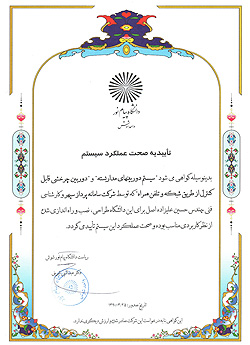 دانشگاه پیام نور
تأییدیه صحت عملکرد سیستم
بدینوسیله گواهی می شود "سیستم دوربینهای مداربسته" و "دوربین چرخشی قابل
کنترل از طریق شبکه و تلفن همراه" که توسط شرکت سامانه پرداز سپهر و کارشناسی
فنی مهندس حسین علیزاده اصل برای این دانشگاه طراحی، نصب و راه اندازی شده
از نظر کاربردی مناسب بوده و صحت عملکرد این سیستم تأیید می گردد.
ریاست دانشگاه پیام نور شوش
تاریخ صدور: